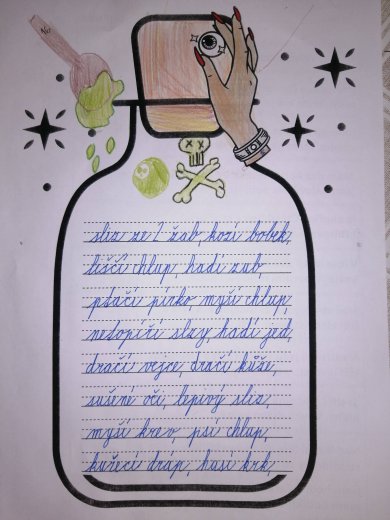 sliz ze 2 žab, kozí bobek,
liščí chlup, hadí zub,
ptačí pírko, myší chlup,
netopíří slzy, hadí jed,
dračí vejce, dračí kůže,
sušené oči, lepivý sliz,
myší krev, psí chlup,
kuřecí dráp, husí krk,